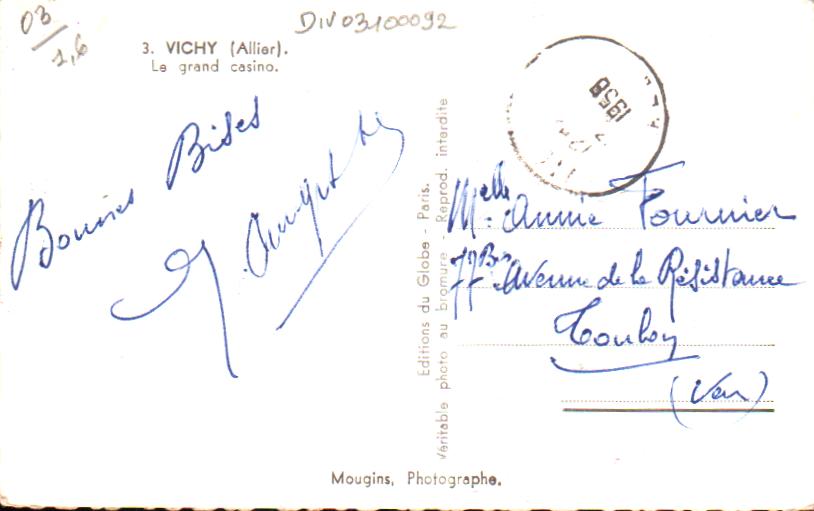 03
1,6
DIV03100092
3. VICHY (Allier).
Le grand casino.
Bonnes Bises
Editions du Globe - Paris.
Véritable photo au bromure - Reprod. interdite
1958
Melle Annie Fournier
77 Bis Avenue de la Résistance
Toulon
(Var)
Mougins, Photographe.